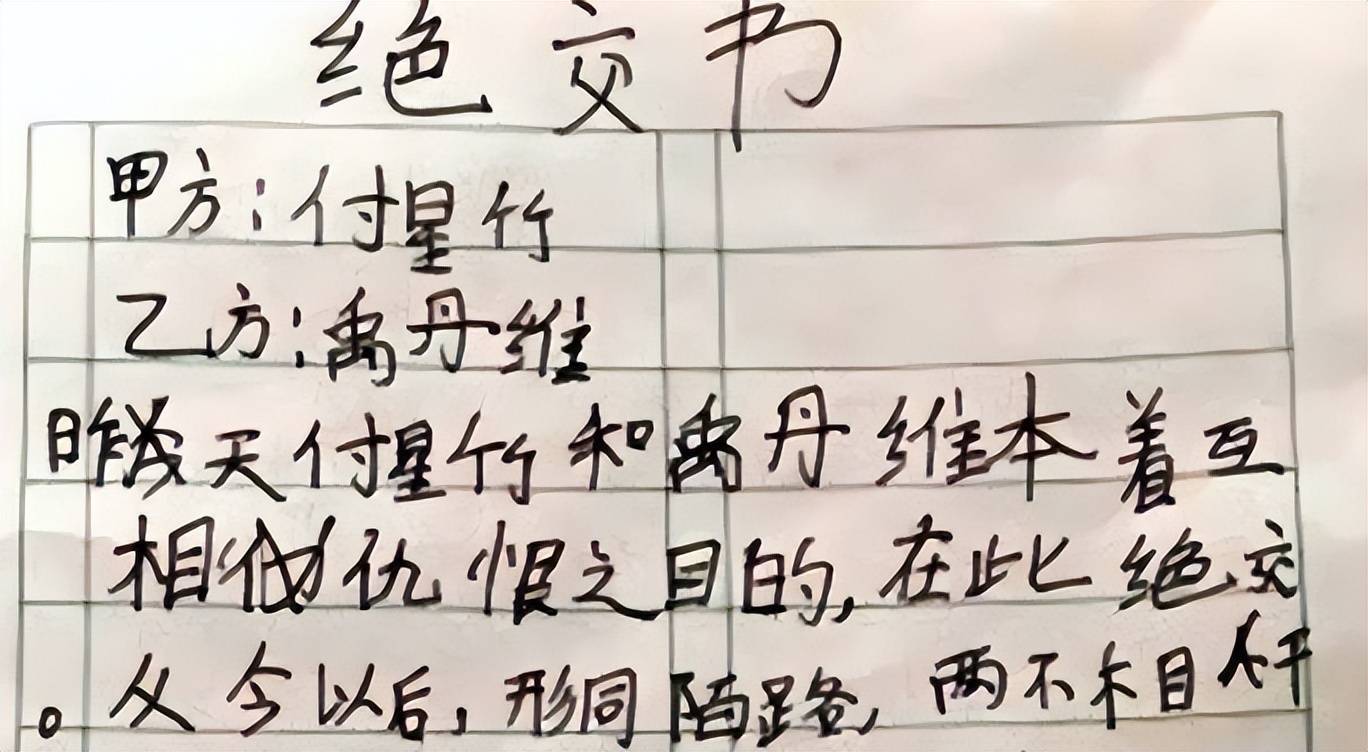 绝交书
甲方:付星竹
乙方:禹丹维
昨天付星竹和禹丹维本着互
相仇恨之目的,在此绝交
。从今以后,形同陌路,两不相